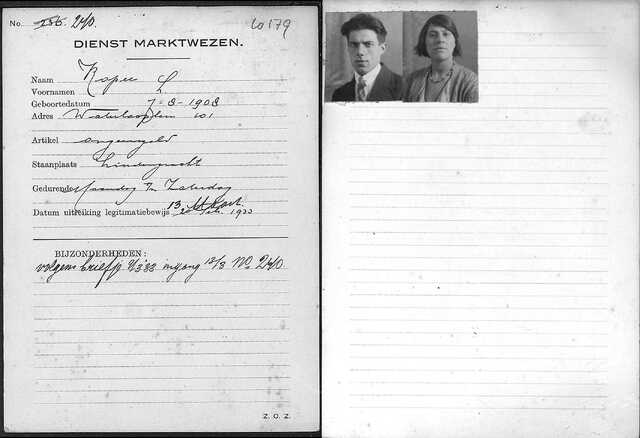 No. 286. 240.
60179
DIENST MARKTWEZEN.
Naam Koper
Voornamen L
Geboortedatum 7-8-1908
Adres Waterlooplein 101
Artikel ongeregeld
Staanplaats Lindengracht
Gedurende Maandag Zaterdag
Datum uitreiking legitimatiebewijs 13 Maart 1933
BIJZONDERHEDEN:
volgens brief 2/3 '33 ingang 13/3 No 240.
Z. O. Z.